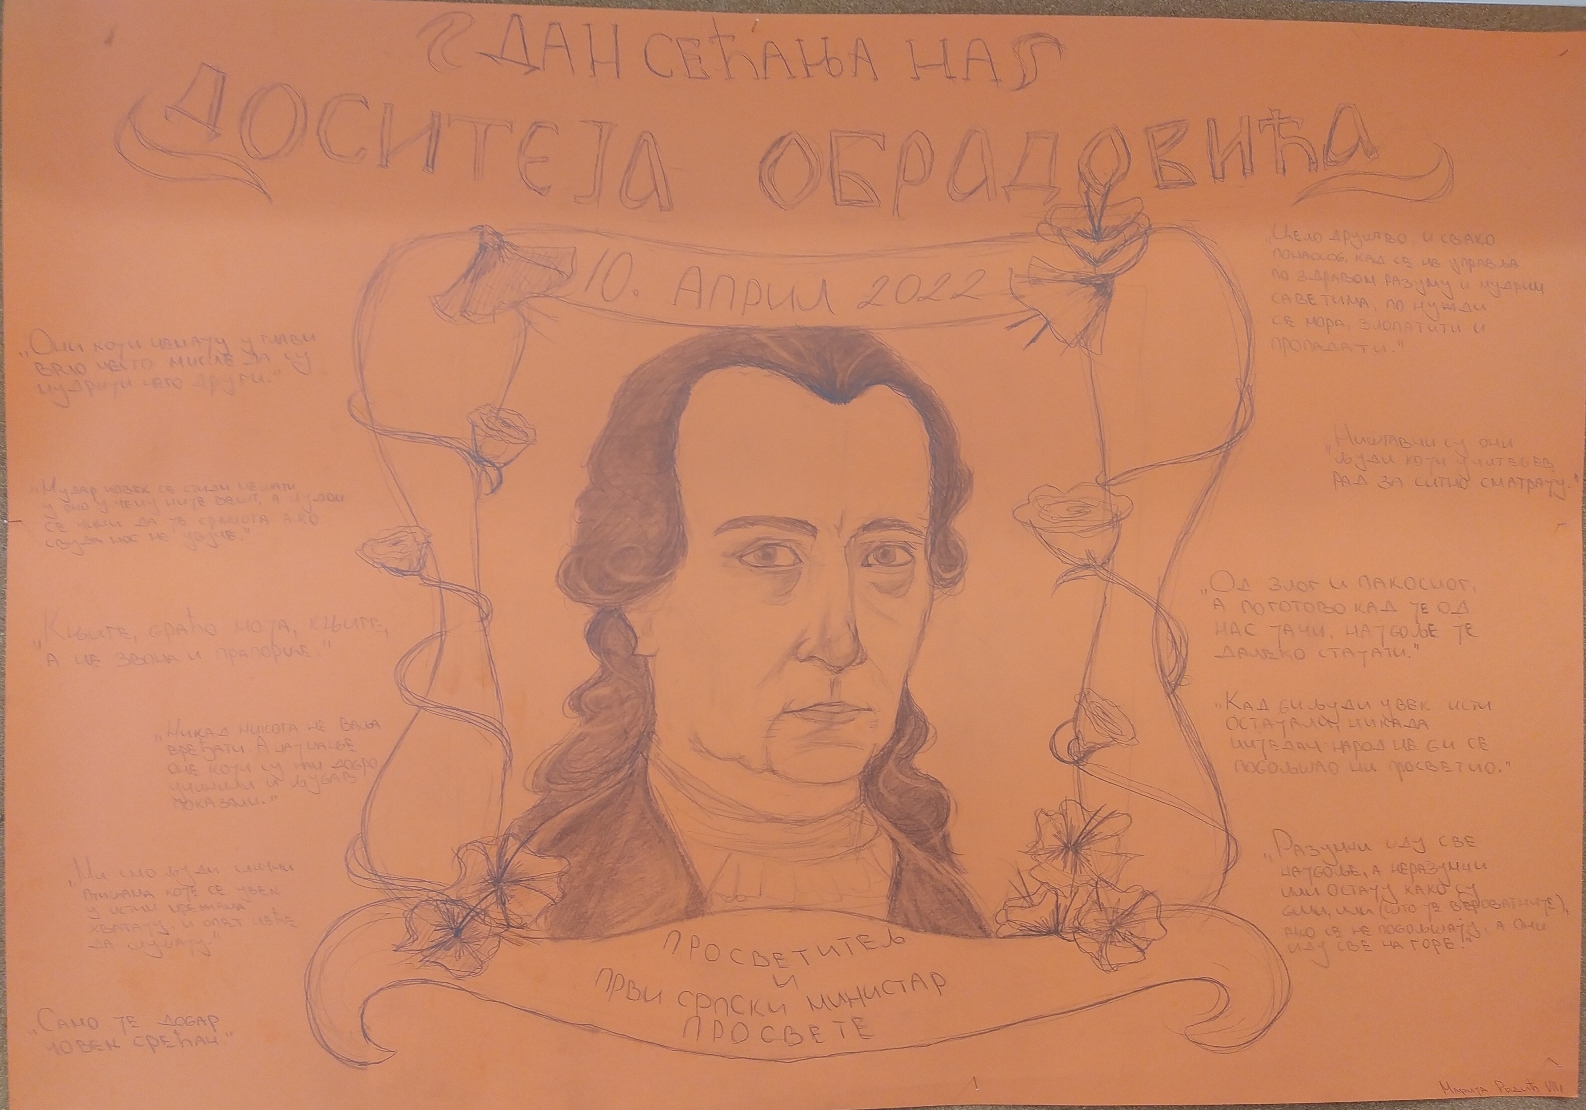 ДАН СЕЋАЊА НА
ДОСИТЕЈА ОБРАДОВИЋА
10. АПРИЛ 2022
„Они који немају у глави
врло често мисле да су
мудрији него други.“
„Мудар човек се стиди немати
у оно у чему није вешт, а
се чини да је срамота ако
свуда нос не
„Књиге, браћо моја, књиге,
а не звона и прапорце.“
„Никад никога не ваља
вређати. А најмање
оне који су ми добро
чинили и љубав
показали.“
„Ми смо људи слични
птицама које се увек
у исти мрежама
хватају, и опет неће
да слушају.“
„Само је добар
човек срећан.“
Цело друштво, и свако
понаособ, кад се не управља
по здравом разуму и мудрим
саветима, по нужди
се мора, злопатити и
пропадати.“
„Ништавни су они
људи који учитељев
рад за ситно сматрају.“
„Од злог и пакосног,
а поготово кад је од
нас јачи, најбоље је
далеко стајати.“
„Кад би људи увек исти
остајали, никада
ниједан народ не би се
побољшао ни просветио.“
„Разумни иду све
набоље, а неразумни
или остају како су
били, или (што је вероватније),
ако се не побољшају, а они
иду све на горе.“
ПРОСВЕТИТЕЉ
И
ПРВИ СРПСКИ МИНИСТАР
ПРОСВЕТЕ
Марија